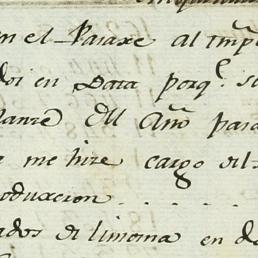 en el Paraxe al tmpo
doi en Data porq.e se
lante del Año para
me hize cargo del
oduxcion . . . . .
ados de limosna en d